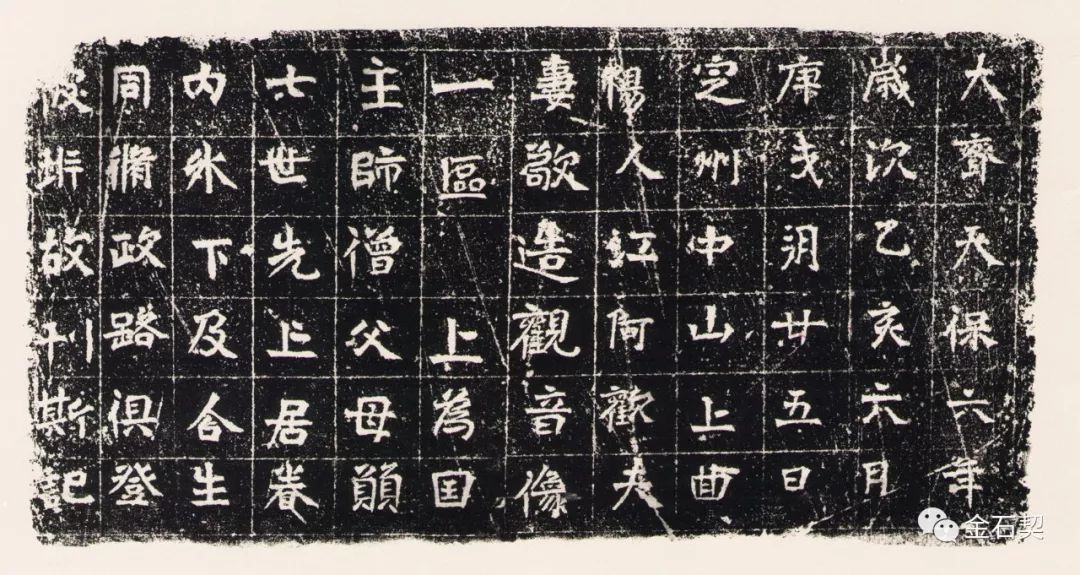 大齊天保六年
歲次乙亥六月
庚戌朔廿五日
定州中山上曲
楊人江阿歡夫
妻敬造觀音像
一區 上為囯
主師僧父母願
七世先亡居眷
内外下及合生
同脩政路俱登
彼岸故刊斯記
金石契